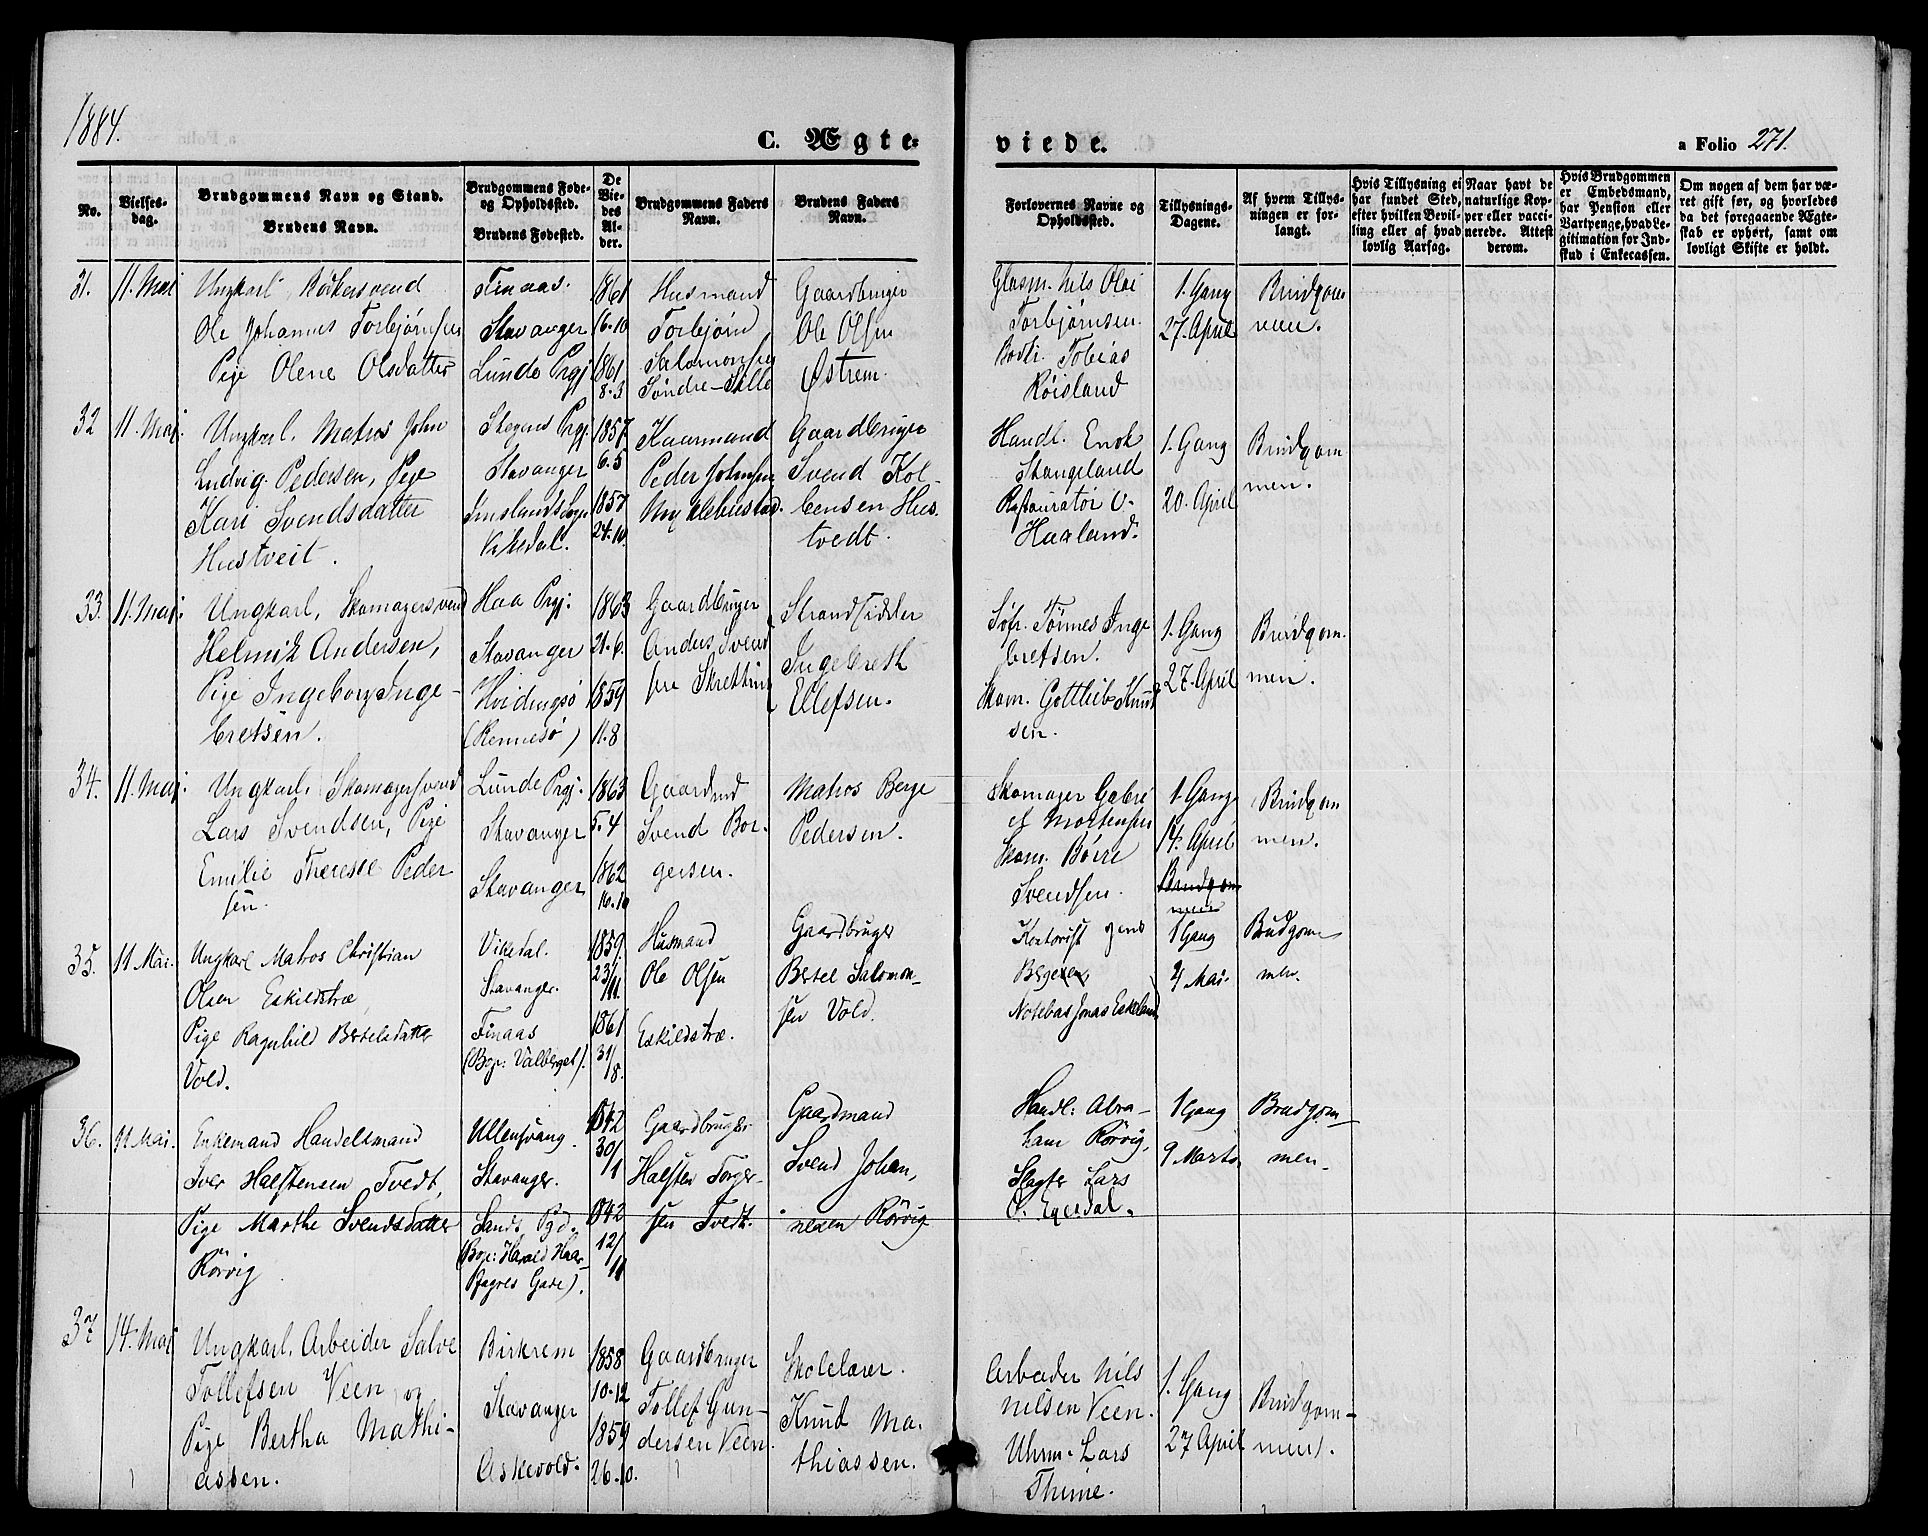 1884.
C. Ægte-
viede.
a Folio 271.
No.
Vielses-
dag.
Brudgommens Navn og Stand.
Brudens Navn.
Brudgommens Føde-
og Opholdssted.
Brudens Fødested.
De
Vie-
des
Al-
der.
Brudgommens Faders
Navn.
Brudens Faders
Navn.
Forlovernes Navne og
Opholdssted.
Tillysnings-
Dagene.
Af hvem Tillys-
ningen er for-
langt.
Hvis Tillysning ei
har fundet Sted,
efter hvilken Bevil-
ling eller af hvad
lovlig Aarsag.
Naar havt de
naturlige Kop-
per eller vacci-
nerede. Attest
derom.
Hvis Brudgommen
er Embedsmand,
har Pension eller
Vartpenge, hvad Le-
gitimation for Ind-
skud i Enkecassen.
Om nogen af dem har væ-
ret gift før, og hvorledes
da det foregaaende Ægte-
skab er ophørt, samt om
lovligt Skifte er holdt.
31.
11. Mai
Ungkarl, Bødkersvend
Ole Johannes Torbjørnsen
Pige Olene Olsdatter
Finaas.
Stavanger
Lunde Prgj.
1861
16-10
1861
8-3
Husmand
Torbjørn
Salomonsen
Søndre-Sille
Gaardbruger
Ole Olsen
Østrem.
Glasm. Nils Olai
Torbjørnsen.
Bodtr. Tobias
Røisland
1. Gang
27. April
Brudgom
men.
32
11. Mai.
Ungkarl. Matros John
Ludvig Pedersen, Pige
Kari Svendsdatter
Hustveit.
Skegens Prgj.
Stavanger
Imslands Sogn
Vikedal.
1857
6-5
1857
24-10.
Kaarmand
Peder Johnsen
Myklebustad.
Gaardbruger
Svend Kol-
bensen Hus.
tvedt.
Handl. Enok
Stangeland
Restauratør O.
Haaland.
1. Gang
20. April
Brudgom
men.
33.
11. Mai.
Ungkarl, Skomagersvend
Helmik Andersen,
Pige Ingeborg Inge-
bretsen.
Haa Prgj.
Stavanger
Hvidingsø
(Rennesø)
1863
21-6.
1859
11-8
Gaardbruger
Anders Svend
sen Skretting
Strandsidder
Ingebreth
Ellefsen.
Søfr. Tønnes Inge
bretsen.
Skom. Gottlieb Knud
sen.
1. Gang
27. April
Brudgom.
men.
34.
11. Mai.
Ungkarl. Skomagersvend
Lars Svendsen, Pige
Emilie Therese Peder
sen.
Lunde Prgj.
Stavanger
Stavanger
1863
5-4
1862
16-10
Gaardmd
Svend Bor-
gersen.
Matros Berge
Pedersen.
Skomager Gabri
el Mortensen
Skom. Børre
Svendsen.
1. Gang
14. April
Brudgom
men
Brudgom
men.
35.
11 Mai.
Ungkarl Matros Christian
Olsen Eskildstræ,
Pige Ragnhild Bertelsdatter
Vold.
Vikedal.
Stavanger.
Finaas
(Bop: Valberget).
1859.
23/11.
1861
31/8.
Husmand
Ole Olsen
Eskildstræ.
Gaardbruger
Bertel Salomon-
sen Vold.
Kontorist Jens
Notebas Jonas Eskeland
1 Gang
4 Mai.
Brudgom-
men.
36.
11 Mai.
Enkemand Handelsmand
Iver Halstensen Tvedt,
Pige Marthe Svendsdatter
Rørvig
Ullensvang.
Stavanger.
Sands Pgd.
(Bop: Harald Haar-
fagres Gade).
1842
30/1
1842
12/11
Gaardbruger
Halsten Torger-
sen Tvedt.
Gaardmand
Svend Johan,
nesen Rørvig
Handl: Abra-
ham Rørvig,
Slagter Lars
O. Egesdal.
1 Gang
9 Marts.
Brudgom-
men.
37
14. Mai
Ungkarl, Arbeider Salve
Tollefsen Veen, og
Pige Bertha Mathi-
assen.
Birkrem
Stavanger
Askevold.
1858.
10-12
1859
26-10.
Gaardbruger
Tollef Gun-
dersen Veen.
Skolelærer.
Knud Ma-
thiassen.
Arbeider Nils
Nilsen Veen.
Uhrm. Lars
Thime.
1. Gang
27 April
Brudgom-
men.